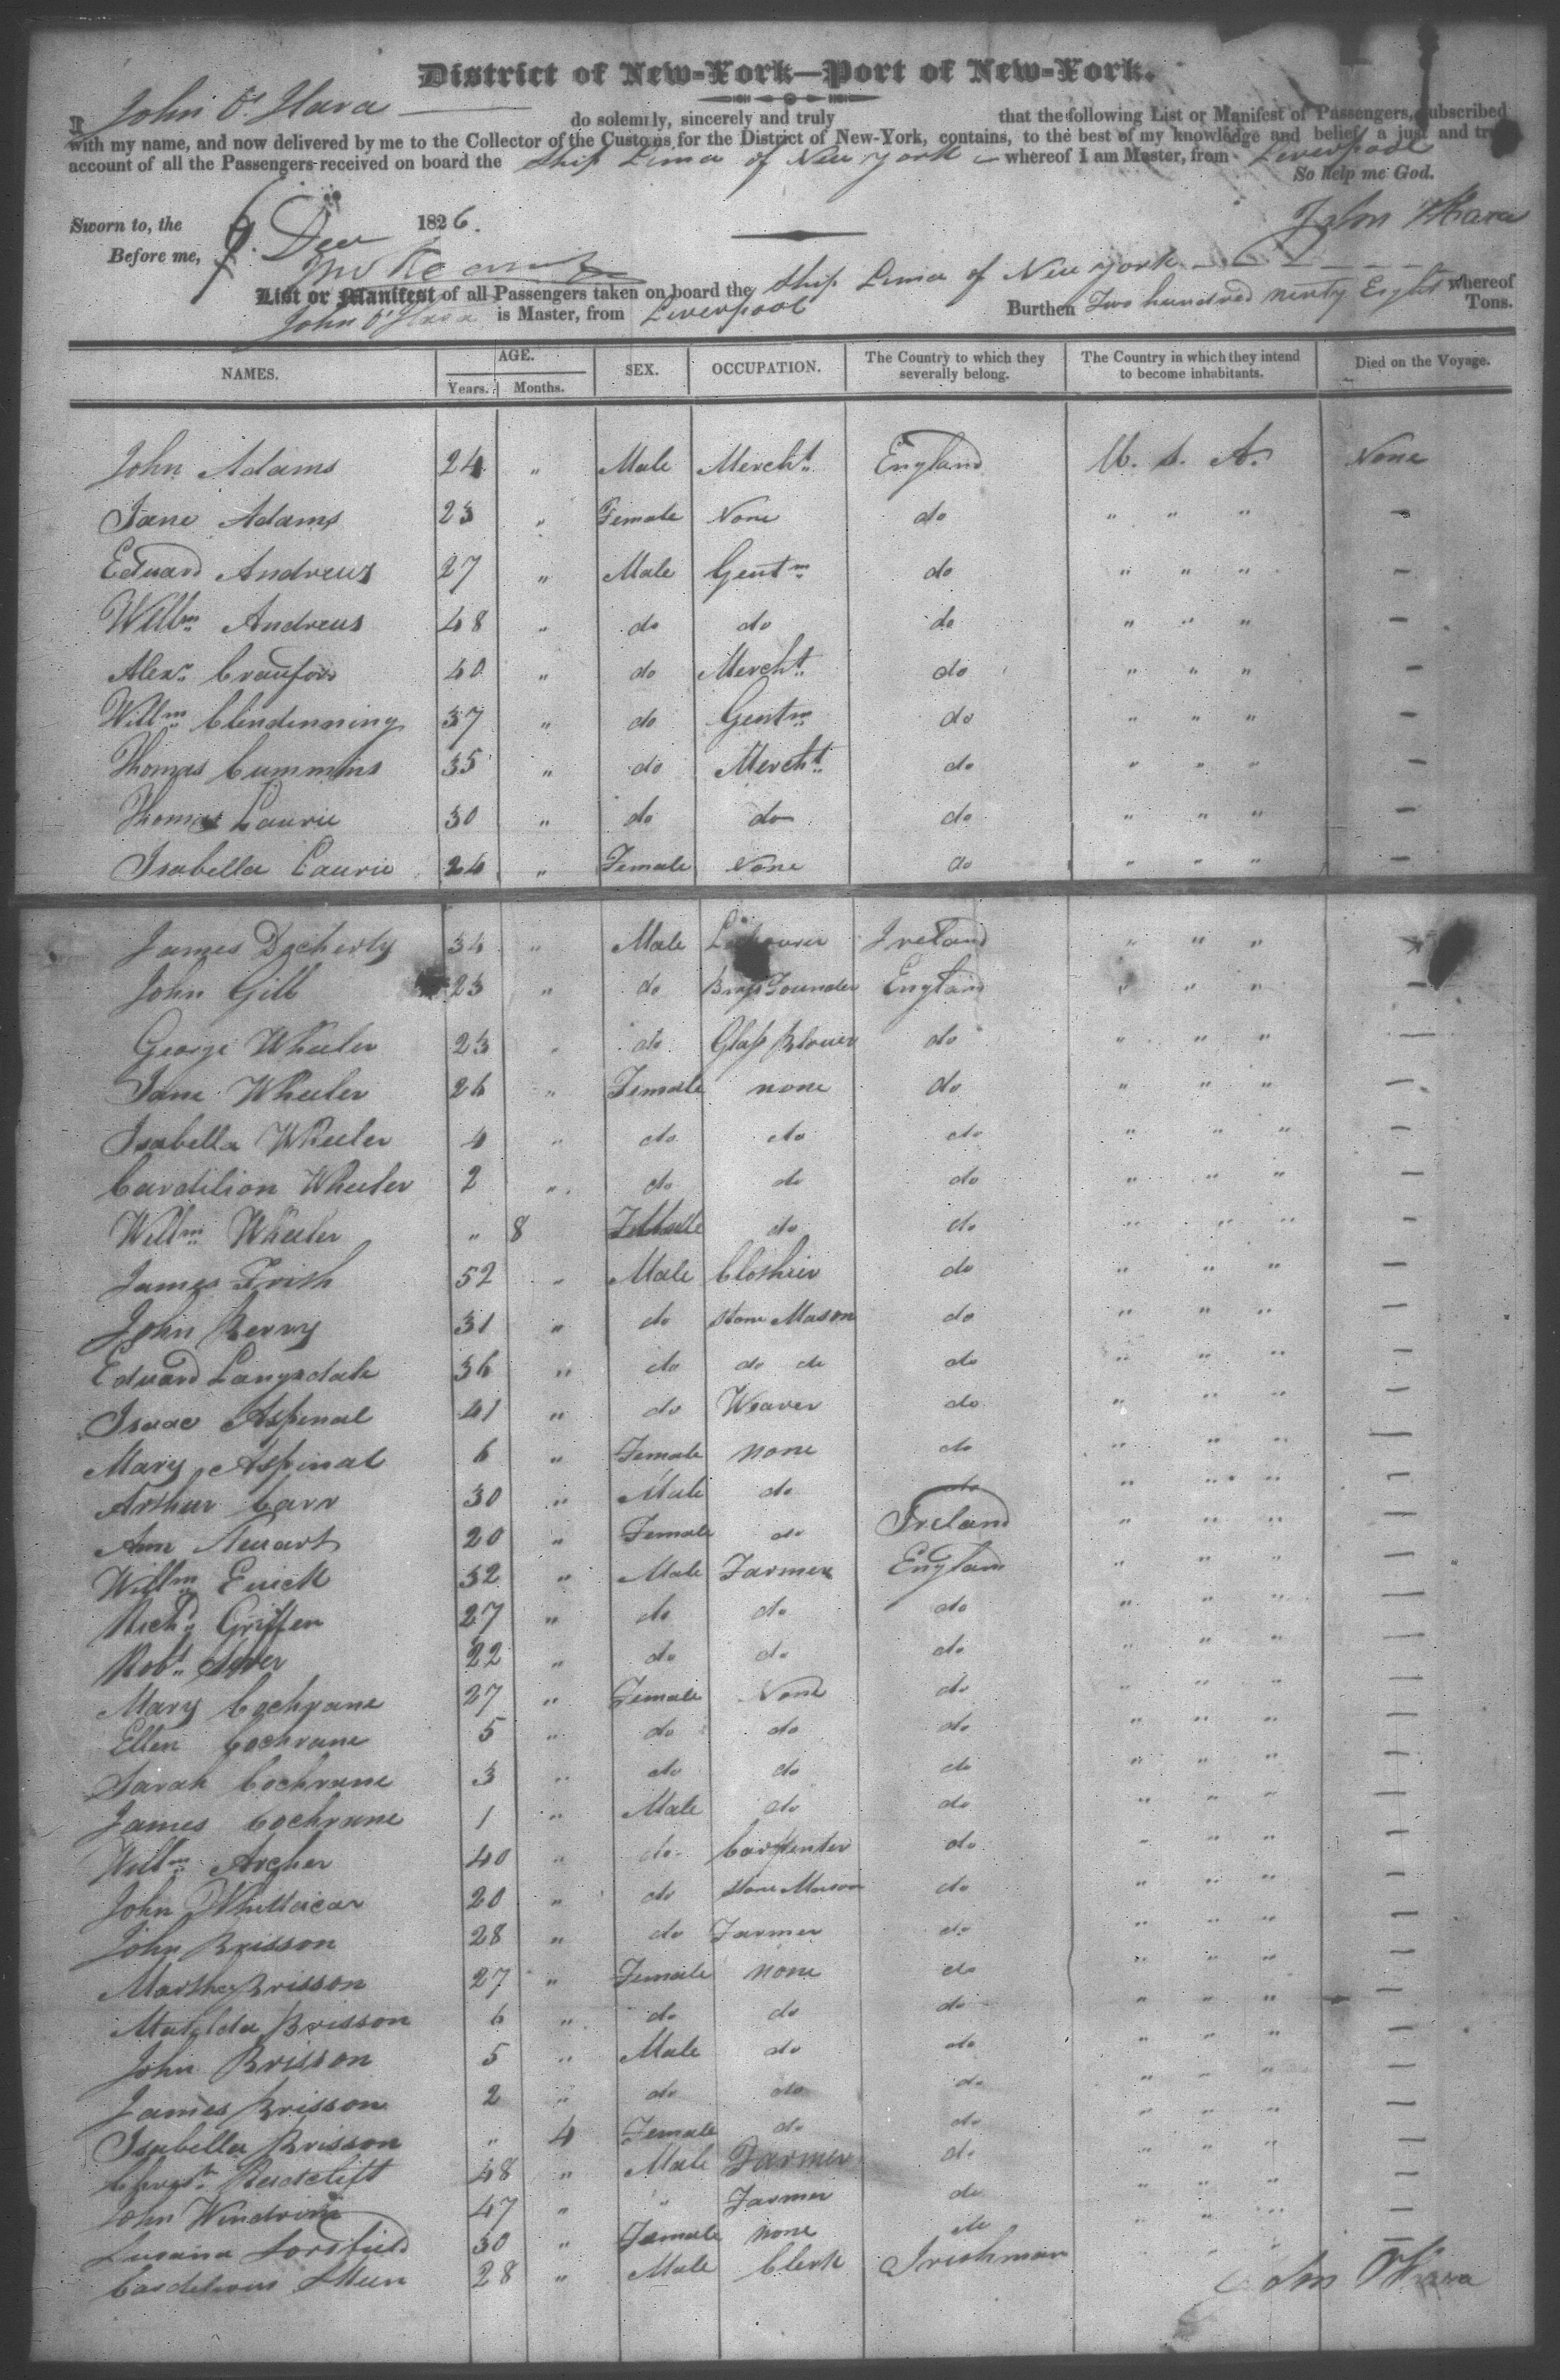 District of New-York—Port of New-York.
I John O'Hara do solemnly, sincerely and truly that the following List or Manifest of Passengers, subscribed
with my name, and now delivered by me to the Collector of the Customs for the District of New-York, contains, to the best of my knowledge and belief, a just and true
account of all the Passengers received on board the Ship Lima of New York whereof I am Master, from Liverpool
So help me God.
Sworn to, the 9 Dec 1826.
John O'Hara
Before me,
List or Manifest of all Passengers taken on board the Ship Lima of New York whereof
John O'Hara is Master, from Liverpool Burthen Two hundred ninty Eight Tons.
NAMES. AGE. Years. Months. SEX. OCCUPATION. The Country to which they severally belong. The Country in which they intend to become inhabitants. Died on the Voyage.
John Adams 24 " Male Mercht. England U. S. A. None
Jane Adams 23 " Female None do " " " —
Edward Andrews 27 " Male Gentm do " " " —
Willm Andrews 48 " do do do " " " —
Alexr. Crauford 40 " do Mercht. do " " " —
Willm Clendinning 37 " do Gentm do " " " —
Thomas Cummins 35 " do Mercht. do " " " —
Thomas Laurie 30 " do do do " " " —
Isabella Laurie 24 " Female None do " " " —
James Docherty 34 " Male Labourer Ireland " " " —
John Gill 23 " do Brass Founder England " " " —
George Wheeler 23 " do Glass Blower do " " " —
Jane Wheeler 26 " Female none do " " " —
Isabella Wheeler 4 " do do do " " " —
Cardilion Wheeler 2 " do do do " " " —
Willm Wheeler " 8 do do " " " —
James Frith 52 " Male Clothier do " " " —
John Berry 31 " do Stone Mason do " " " —
Edward Langsdale 36 " do do do do " " " —
Isaac Aspinal 41 " do Weaver do " " " —
Mary Aspinal 6 " Female none do " " " —
Arthur Carr 30 " Male do do " " " —
Ann Stewart 20 " Female do Ireland " " " —
Willm 32 " Male Farmer England " " " —
Richd. Griffen 27 " do do do " " " —
Robt. 22 " do do do " " " —
Mary Cochrane 27 " Female None do " " " —
Ellen Cochrane 5 " do do do " " " —
Sarah Cochrane 3 " do do do " " " —
James Cochrane 1 " Male do do " " " —
Willm Archer 40 " do Carpenter do " " " —
John Whittacar 20 " do Stone Mason do " " " —
John Brisson 28 " do Farmer do " " " —
Martha Brisson 27 " Female none do " " " —
Matilda Brisson 6 " do do do " " " —
John Brisson 5 " Male do do " " " —
James Brisson 2 " do do do " " " —
Isabella Brisson " 4 Female do do " " " —
Radclift 48 " Male Farmer do " " " —
John Windrim 47 " " Farmer do " " " —
Susana 30 " Female none do " " " —
28 " Male Clerk Irishman
John O'Hara